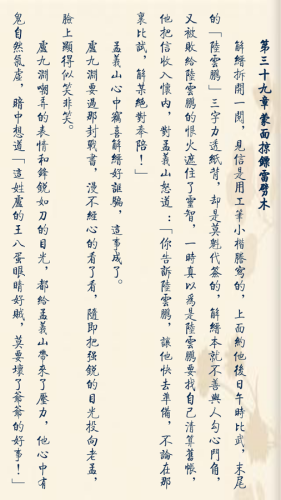 第三十九章 蒙面掠鏢雷劈木
解緒拆開一閱，見信是用工筆小楷謄寫的，上面約他後日午時比武，末尾
的「陸雲鵬」三字力透紙背，却是莫魁代簽的，解緒本就不善與人勾心鬥角，
又被敗給陸雲鵬的恨火遮住了靈智，一時真以為是陸雲鵬要找自己清算舊帳，
他把信收入懷內，對孟義山怒道：「你告訴陸雲鵬，讓他快去準備，不論在那
裏比試，解某絕對奉陪！」
孟義山心中竊喜解緒好誆騙，這事成了。
盧九淵要過那封戰書，漫不經心的看了看，隨即把強銳的目光投向老孟，
臉上顯得似笑非笑。
盧九淵嘲弄的表情和鋒銳如刀的目光，都給孟義山帶來了壓力，他心中有
鬼自然氣虛，暗中想道「這姓盧的王八蛋眼睛好賊，莫要壞了爺爺的好事！」